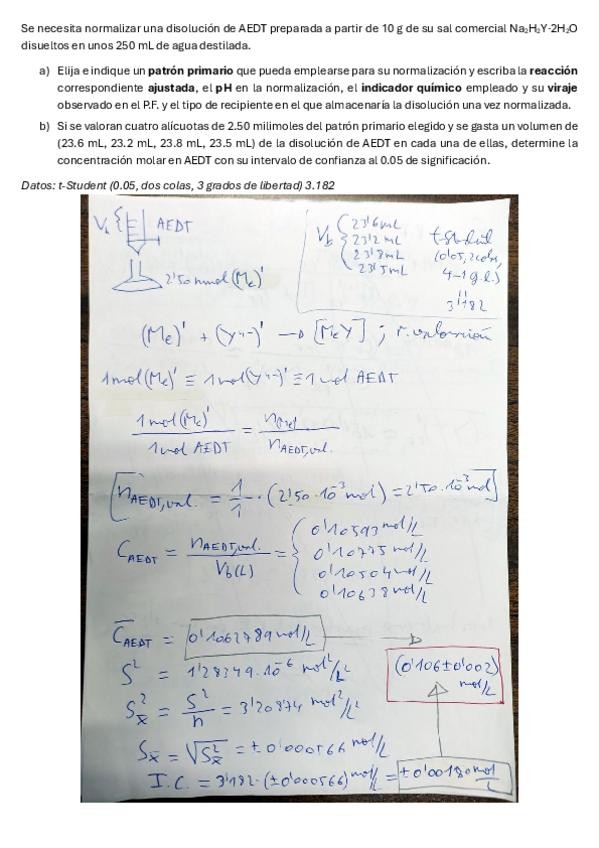 Se necesita normalizar una disolución de AEDT preparada a partir de 10 g de su sal comercial Na₂H₂Y·2H₂O
disueltos en unos 250 mL de agua destilada.
a) Elija e indique un patrón primario que pueda emplearse para su normalización y escriba la reacción
correspondiente ajustada, el pH en la normalización, el indicador químico empleado y su viraje
observado en el P.F. y el tipo de recipiente en el que almacenaría la disolución una vez normalizada.
b) Si se valoran cuatro alícuotas de 2.50 milimoles del patrón primario elegido y se gasta un volumen de
(23.6 mL, 23.2 mL, 23.8 mL, 23.5 mL) de la disolución de AEDT en cada una de ellas, determine la
concentración molar en AEDT con su intervalo de confianza al 0.05 de significación.
Datos: t-Student (0.05, dos colas, 3 grados de libertad) 3.182
V_b { AEDT
2'50 mmol (Me)'
V_b { 23'6 mL
23'2 mL
23'8 mL
23'5 mL
(0'05, 2 colas,
4-1 g.l.)
=
3'182
(Me)' + (Y⁴⁻)' → [MeY] ; r. valoración
1 mol (Me)' ≡ 1 mol (Y⁴⁻)' ≡ 1 mol AEDT
1 mol (Me)' / 1 mol AEDT = n(Me)' / n_AEDT,val.
[n_AEDT,val. = 1/1 · (2'50·10⁻³ mol) = 2'50·10⁻³ mol]
C_AEDT = n_AEDT,val. / V_b(L) = { 0'10593 mol/L
0'10775 mol/L
0'10504 mol/L
0'10638 mol/L
C̄_AEDT = 0'1062789 mol/L
S² = 1'28349·10⁻⁶ mol²/L²
(0'106±0'002) mol/L
S²_x̄ = S²/n = 3'20874 mol²/L²
S_x̄ = √S²_x̄ = ±0'000566 mol/L
I.C. = 3'182·(±0'000566) mol/L = ±0'00180 mol/L